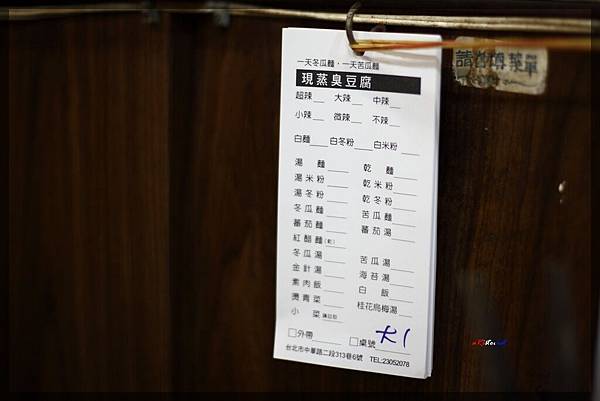 一天冬瓜麵,一天苦瓜麵
現蒸臭豆腐
超辣__ 大辣__ 中辣__
小辣__ 微辣__ 不辣__
白麵__白冬粉__白米粉__
湯麵__ 乾麵__
湯米粉__ 乾米粉__
湯冬粉__ 乾冬粉__
冬瓜麵__ 苦瓜麵__
蕃茄麵__ 蕃茄湯__
紅醋麵(乾)__
冬瓜湯__ 苦瓜湯__
金針湯__ 海苔湯__
素肉飯__ 白飯__
燙青菜__ 桂花烏梅湯__
小菜
□外帶____ □桌號
台北市中華路二段313巷6號 TEL:23052078